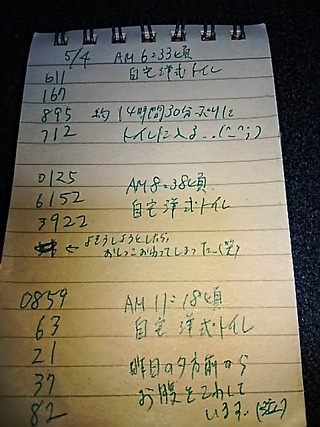 5/4 AM 6:33頃
611 自宅洋式トイレ
167
895 約14時間30分ぶりに
712 トイレに入る...(^^;)
0125 AM 8:38頃
6152 自宅洋式トイレ
3922
← よもうしようとしたら、
おしっこおわってしまった...(笑)
0859 AM 11:18頃
63 自宅洋式トイレ
21
37 昨日の夕方前から
82 お腹をこわして
います。(泣)